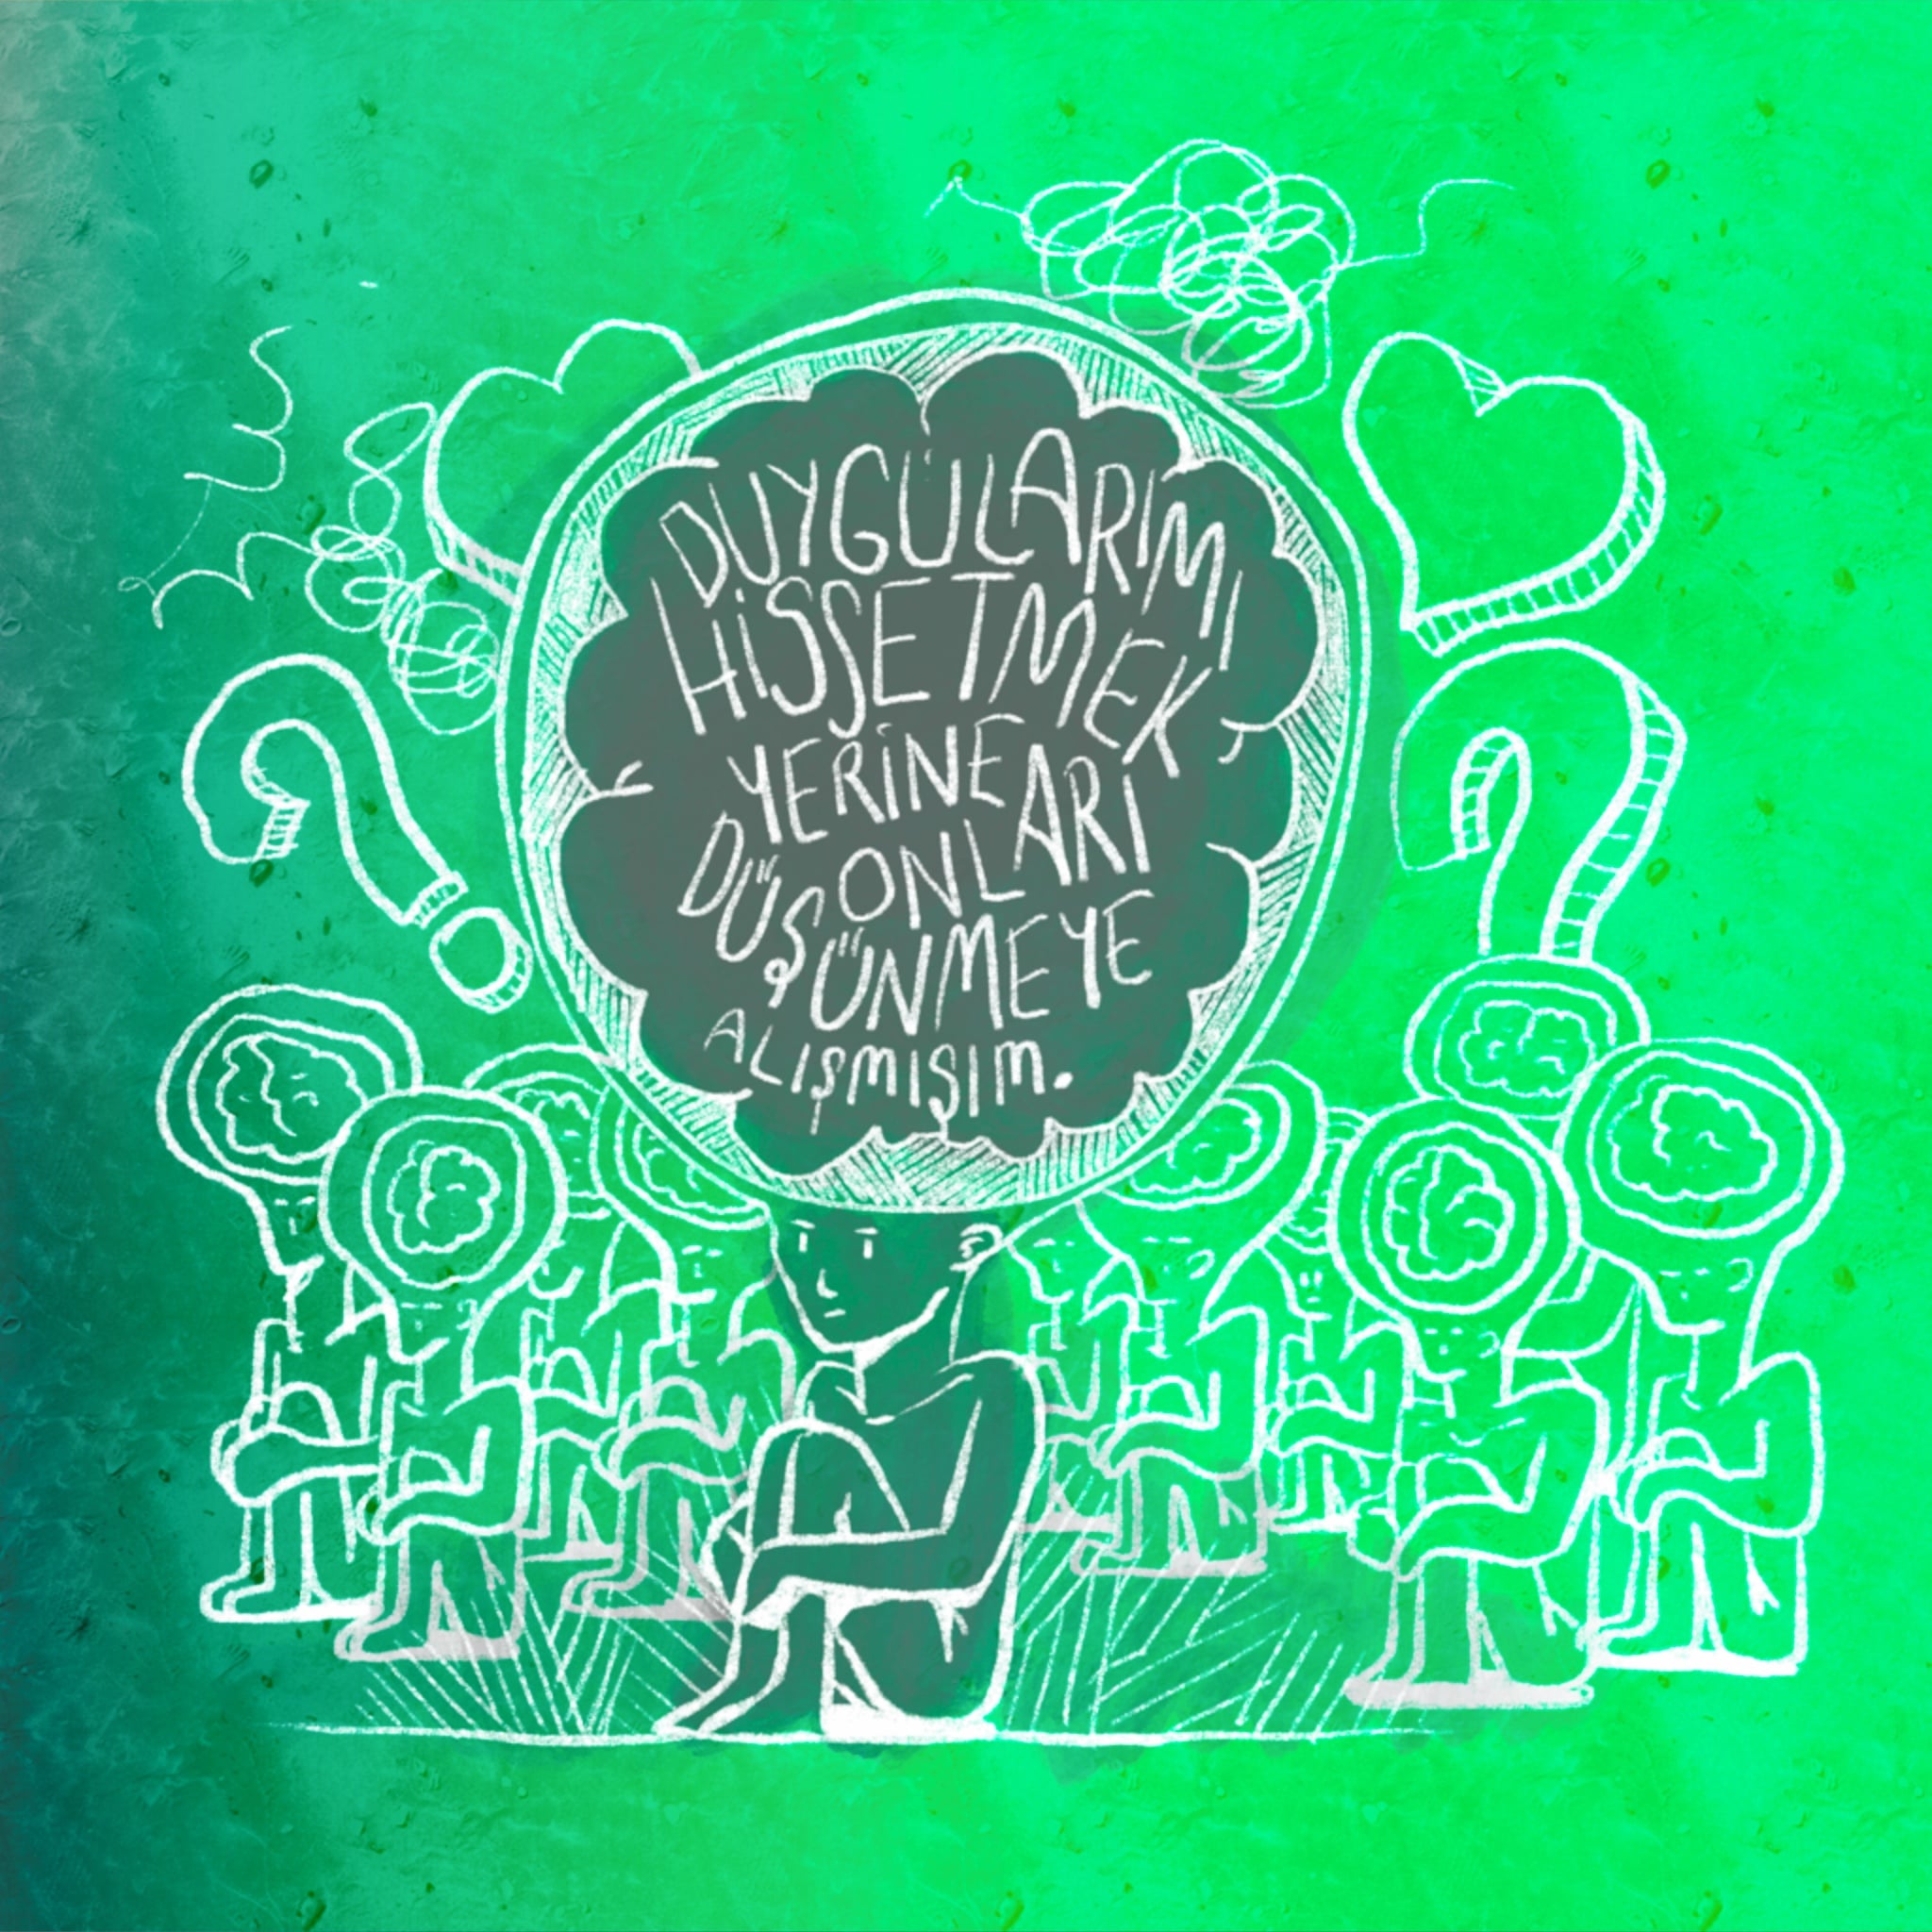 DUYGULARIMI
HİSSETMEK
YERİNE
ONLARI
DÜŞÜNMEYE
ALIŞMIŞIM.